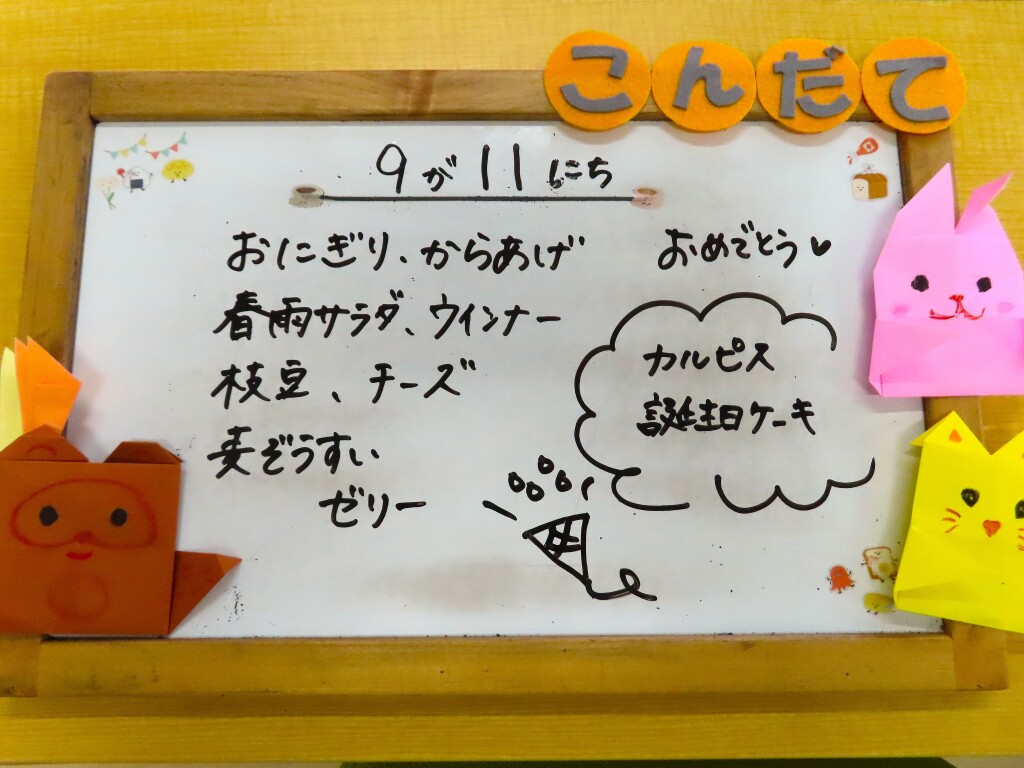 こんだて
9が11にち
おにぎり、からあげ
春雨サラダ、ウインナー
枝豆、チーズ
麦ぞうすい
ゼリー
おめでとう♥
カルピス
誕生日ケーキ